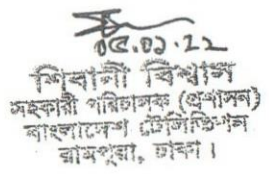 ০৫.০১.২২
শিবানী বিশ্বাস
সহকারী পরিচালক (প্রশাসন)
বাংলাদেশ টেলিভিশন
রামপুরা, ঢাকা।